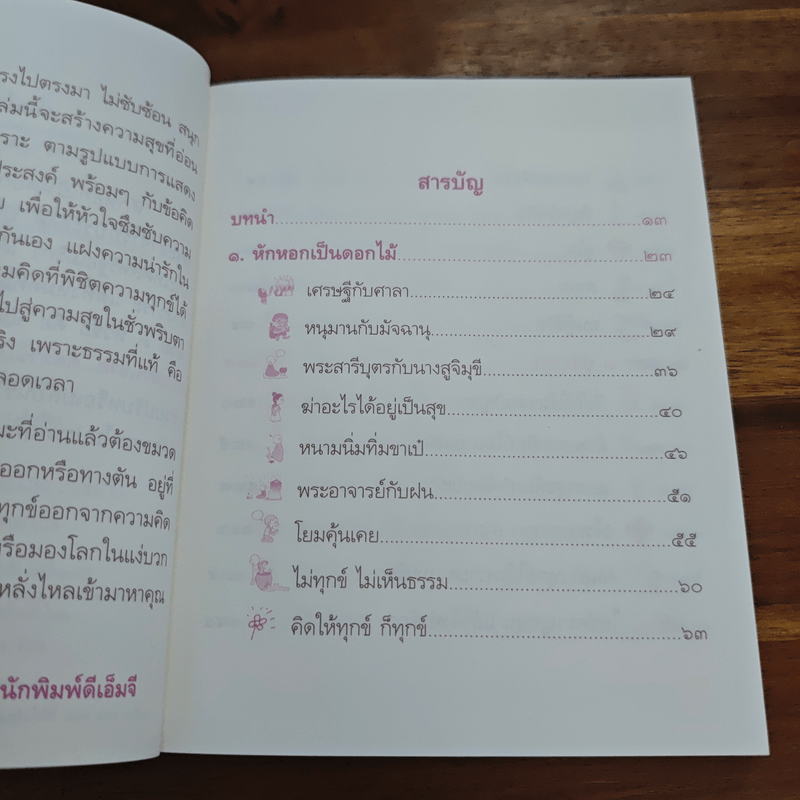 รงไปตรงมา ไม่ซับซ้อน สนุก
ล่มนี้จะสร้างความสุขที่อ่อน
ราะ ตามรูปแบบการแสดง
ประสงค์ พร้อมๆ กับข้อคิด
ย เพื่อให้หัวใจซึมซับความ
กันเอง แฝงความน่ารักใน
มคิดที่พิชิตความทุกข์ได้
ไปสู่ความสุขในชั่วพริบตา
ริง เพราะธรรมที่แท้ คือ
ลอดเวลา
มะที่อ่านแล้วต้องขมวด
ออกหรือทางตัน อยู่ที่
ทุกข์ออกจากความคิด
รือมองโลกในแง่บวก
หลั่งไหลเข้ามาหาคุณ
นักพิมพ์ดีเอ็มจี
สารบัญ
บทนำ ๑๓
๑. หักหอกเป็นดอกไม้ ๒๓
เศรษฐีกับศาลา ๒๔
หนุมานกับมัจฉานุ ๒๙
พระสารีบุตรกับนางสูจิมุขี ๓๖
ฆ่าอะไรได้อยู่เป็นสุข ๔๐
หนามนิ่มทิ่มขาเป๋ ๔๖
พระอาจารย์กับฝน ๕๑
โยมคุ้นเคย ๕๕
ไม่ทุกข์ ไม่เห็นธรรม ๖๐
คิดให้ทุกข์ ก็ทุกข์ ๖๓